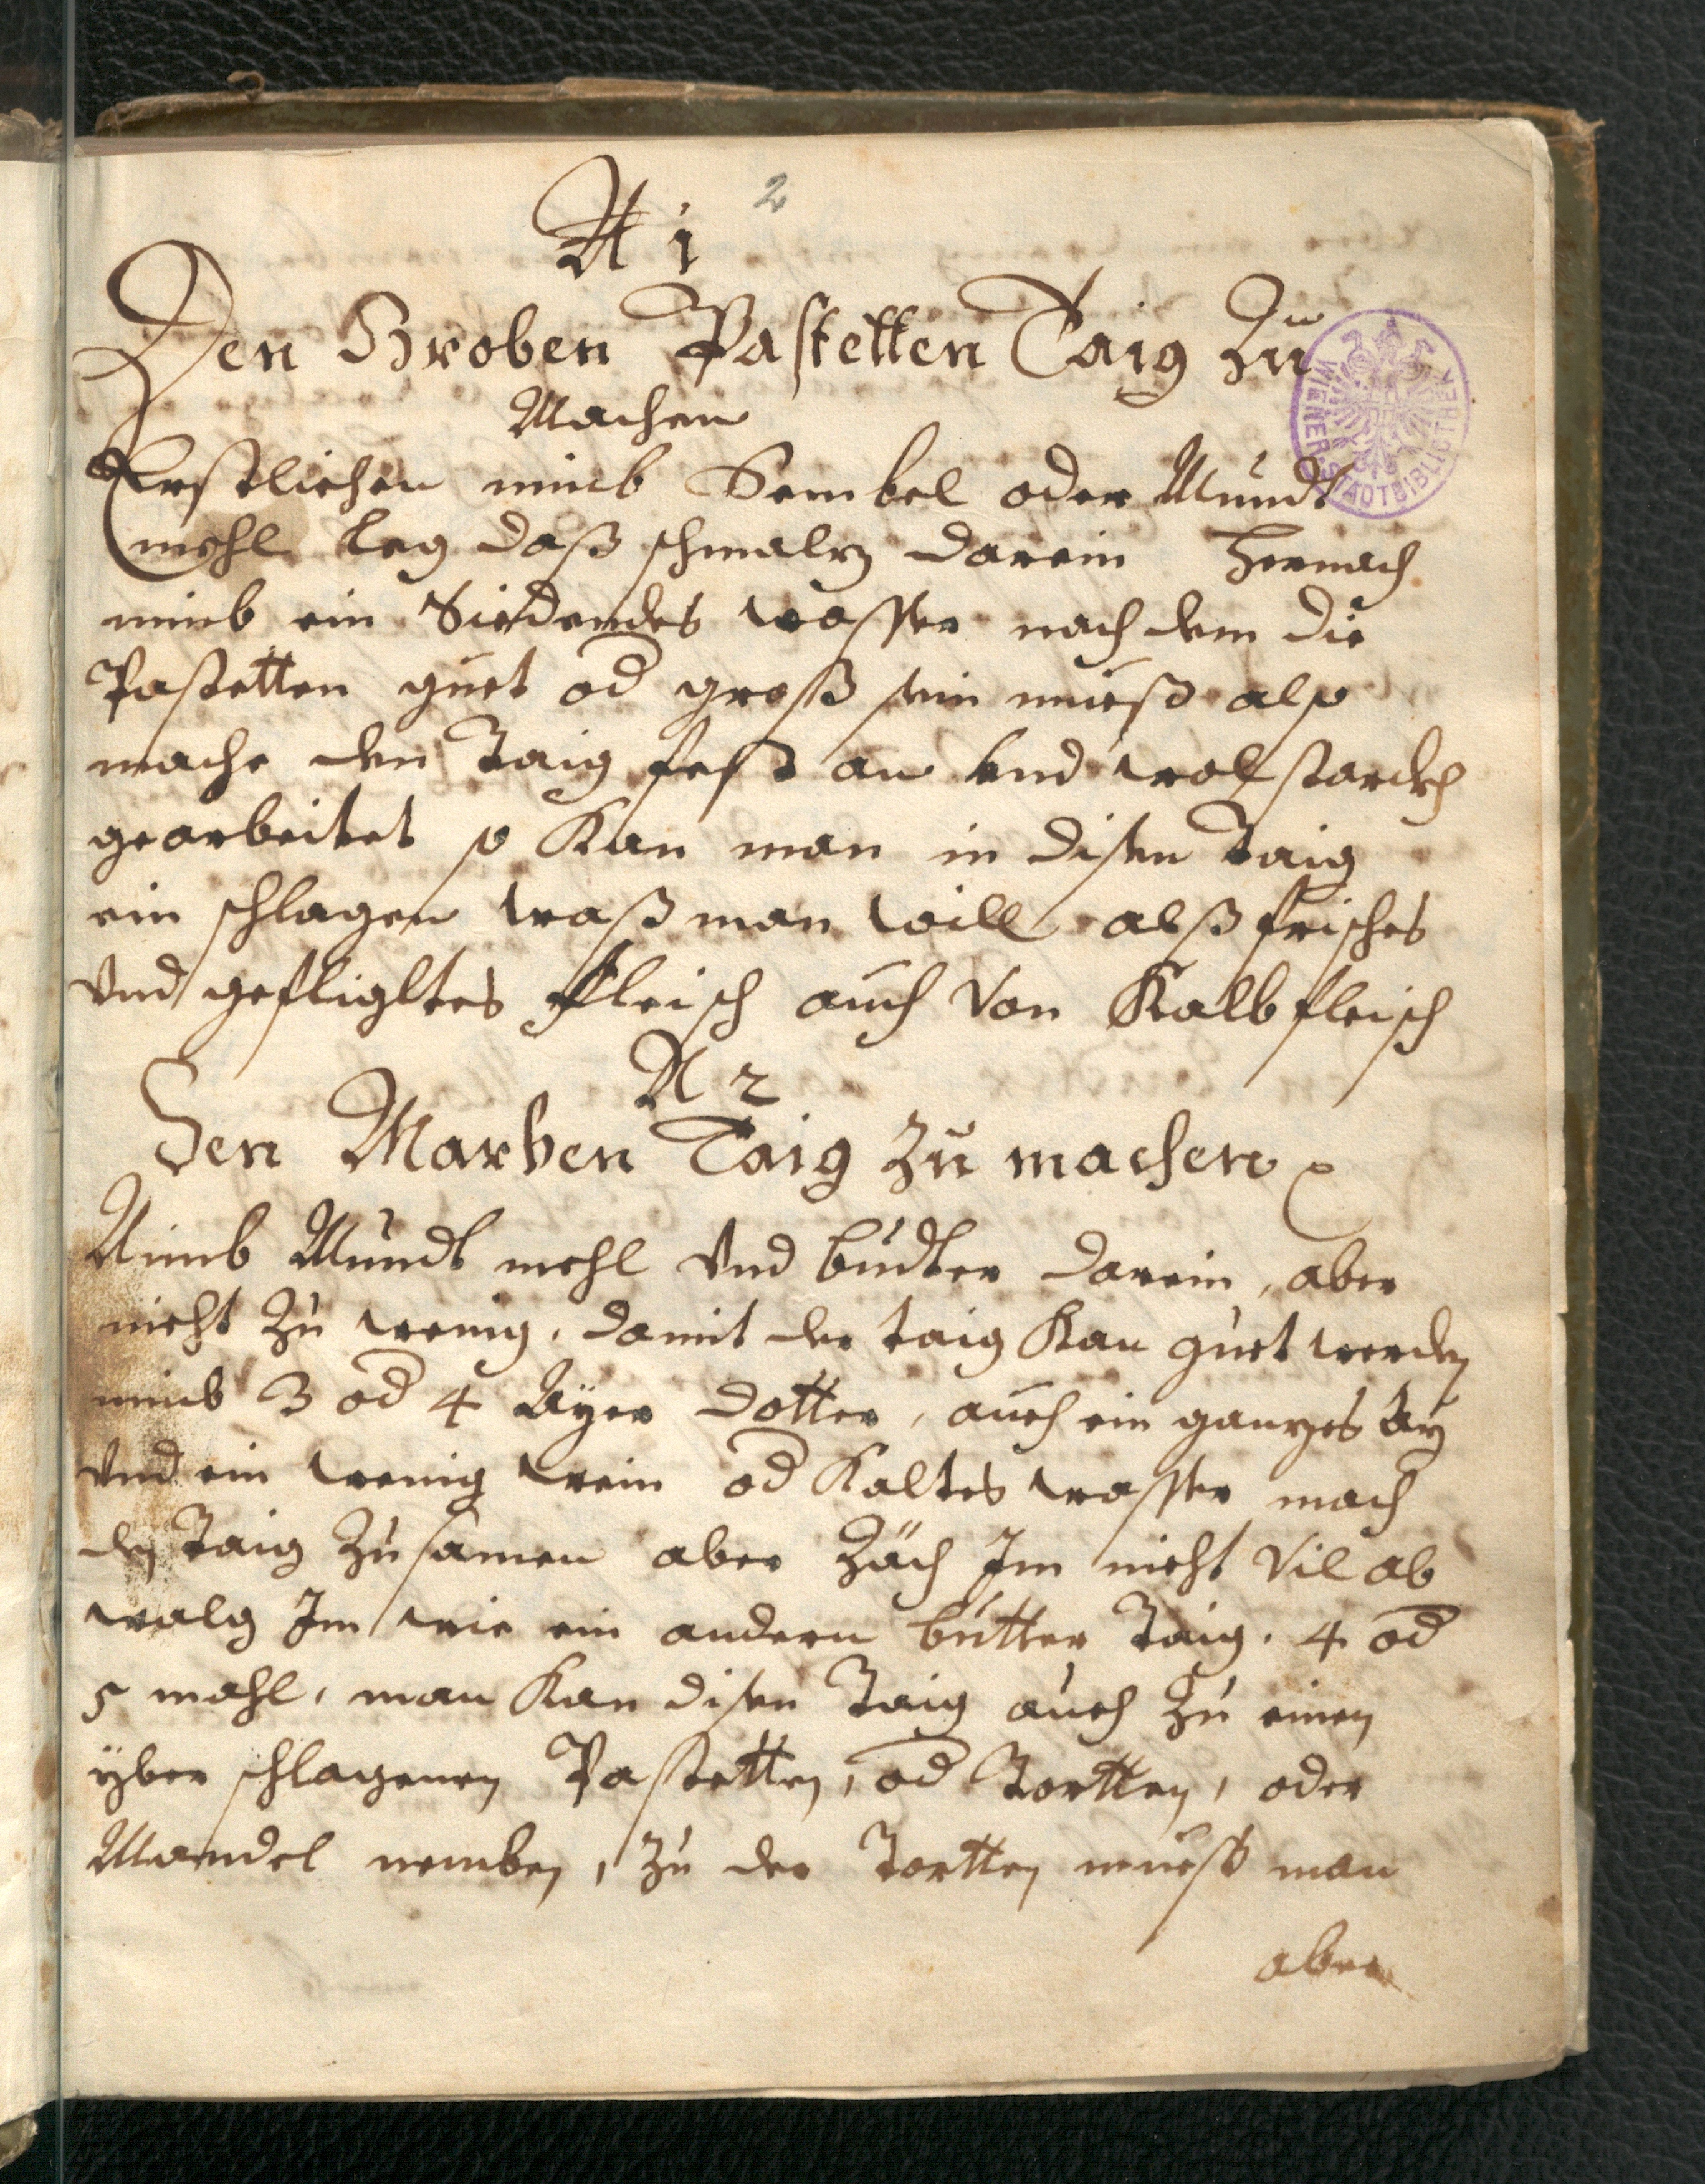 N 1
2
Den Groben Pastetten Taig Zu
Machen
Erstlichen nimb Sembel oder Mundt
mehl leg daß schmalz darein hernach
nimb ein Siedendes wasser nach dem die
Pastetten guet od groß sein mueß also
mache den Taig fest an vnd wol starckh
gearbeitet so Kan man in disen Taig
ein schlagen waß man will alß frisches
Vnd gefligltes fleisch auch Von Kalbfleisch
N 2
Den Marben Taig Zu machen
Nimb Mundt mehl Vnd budter darein, aber
nicht Zu wenig, damit der taig Kan guet werden
nimb 3 od 4 Ayer dotter, auch ein ganzes Ay
Vnd ein wenig wein od Kaltes wasser mach
den Taig Zusamen aber Zäch Im nicht Vil ab
walg Im wie ein andern butter Taig. 4 od
5 mahl, man Kan disen Taig auch Zu einen
yber schlagenen Pastetten, od Tortten, oder
Mandel nemben, Zu der Tortten muest man
aber
WIENER STADTBIBLIOTHEK